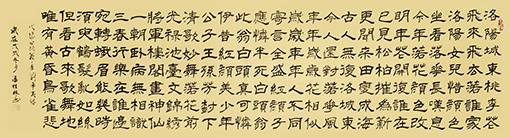 洛陽城東桃李花
飛來飛去落誰家
洛陽女兒惜顏色
坐看落花長歎息
今年落花顏色改
明年花開復誰在
已見松柏摧為薪
更聞桑田變成海
古人無復洛城東
今人還對落花風
年年歲歲花相似
歲歲年年人不同
寄言全盛紅顏子
應憐半死白頭翁
此翁白頭真可憐
伊昔紅顏美少年
公子王孫芳樹下
清歌妙舞落花前
光祿池臺文錦繡
將軍樓閣畫神仙
一朝臥病無相識
三春行樂在誰邊
宛轉蛾眉能幾時
須臾鶴髮亂如絲
但看古來歌舞地
惟有黃昏鳥雀悲